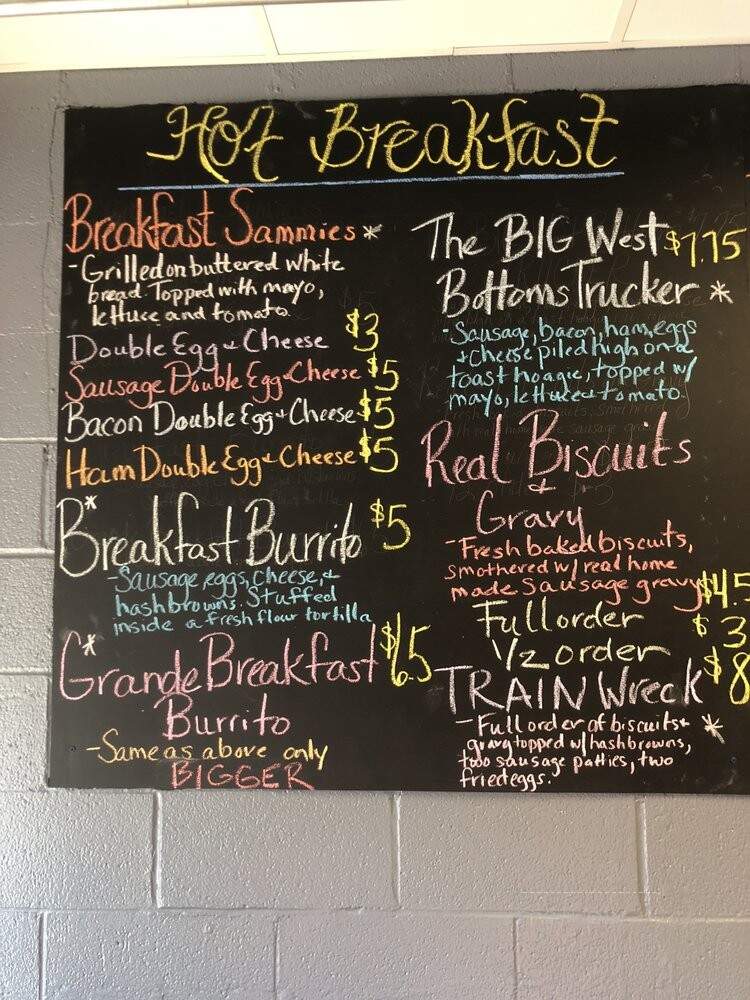 Hot Breakfast
Breakfast Sammies *
- Grilled on buttered white
bread. Topped with mayo,
lettuce and tomato.
Double Egg + Cheese $3
Sausage Double Egg + Cheese $5
Bacon Double Egg + Cheese $5
Ham Double Egg + Cheese $5
*
Breakfast Burrito $5
- Sausage, eggs, cheese, +
hashbrowns. Stuffed
inside a fresh flour tortilla
*
Grande Breakfast $6.5
Burrito
- Same as above only
BIGGER
The BIG West $7.75
Bottoms Trucker *
- Sausage, bacon, ham, eggs
+ cheese piled high on a
toast hoagie, topped w/
mayo, lettuce + tomato
Real Biscuits
+
Gravy
- Fresh baked biscuits,
smothered w/ real home
made sausage gravy
Full order $4.5
1/2 order $3
TRAIN Wreck $8
- Full order of biscuits + *
gravy topped w/ hashbrowns,
two sausage patties, two
fried eggs.